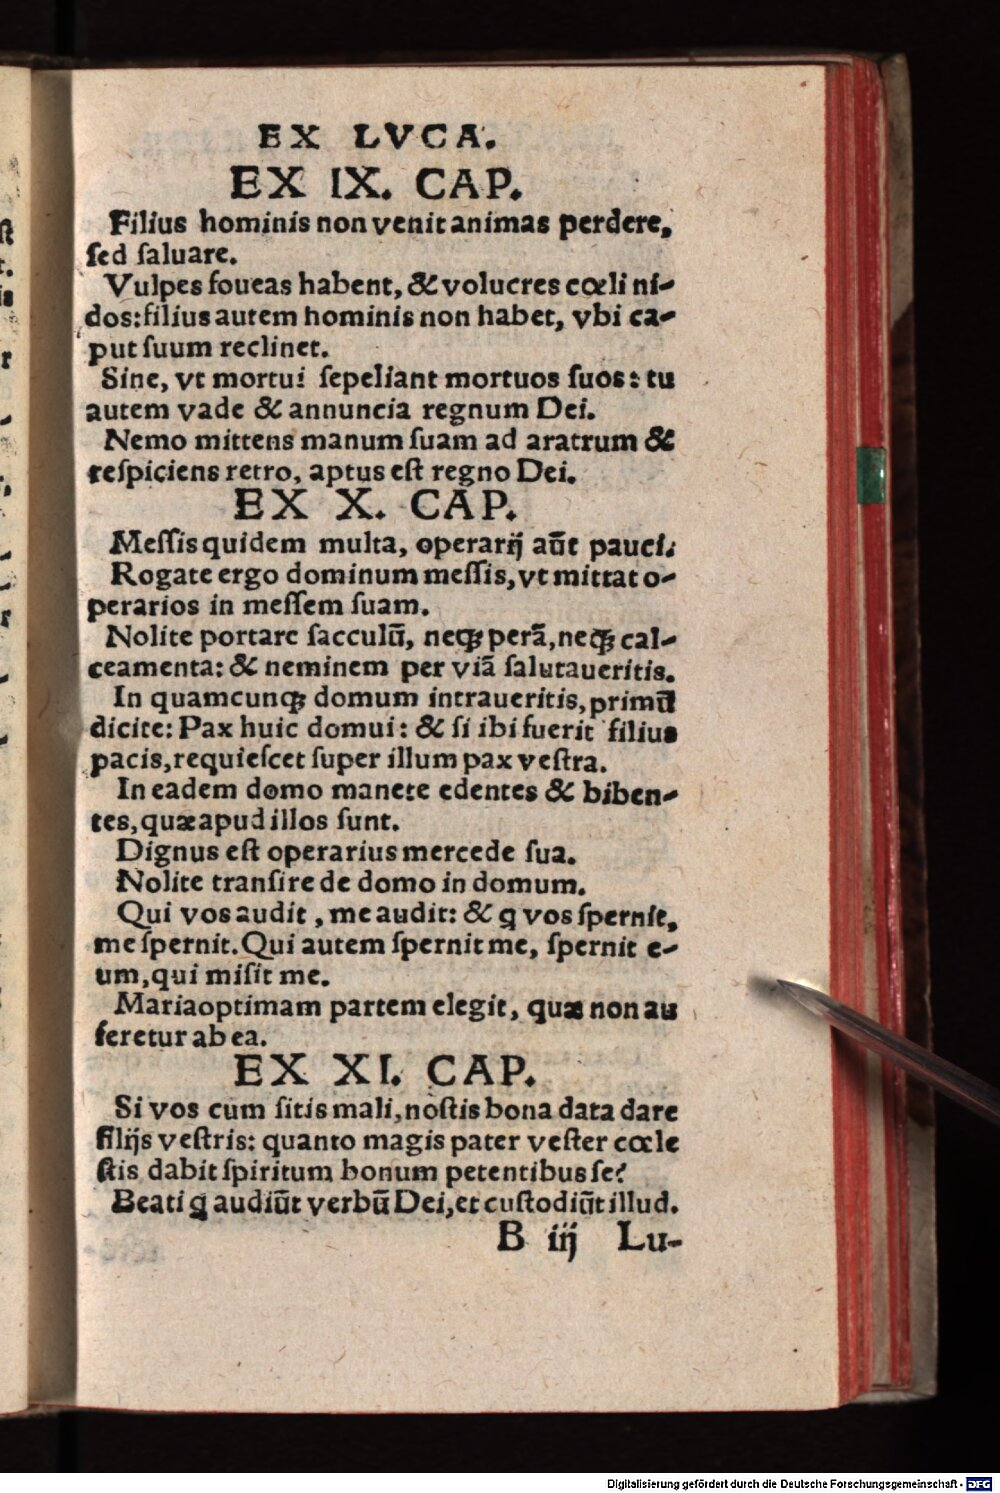 EX LVCA.
EX IX. CAP.
Filius hominis non venit animas perdere,
ſed ſaluare.
Vulpes foueas habent, & volucres cœli ni-
dos: filius autem hominis non habet, vbi ca-
put ſuum reclinet.
Sine, vt mortui ſepeliant mortuos ſuos: tu
autem vade & annuncia regnum Dei.
Nemo mittens manum ſuam ad aratrum &
reſpiciens retro, aptus eſt regno Dei.
EX X. CAP.
Meſſis quidem multa, operarij aūt pauci.
Rogate ergo dominum meſſis, vt mittat o-
perarios in meſſem ſuam.
Nolite portare ſacculū, neqꝫ perā, neqꝫ cal-
ceamenta: & neminem per viā ſalutaueritis.
In quamcunqꝫ domum intraueritis, primū
dicite: Pax huic domui: & ſi ibi fuerit filius
pacis, requieſcet ſuper illum pax veſtra.
In eadem domo manete edentes & biben-
tes, quæ apud illos ſunt.
Dignus eſt operarius mercede ſua.
Nolite tranſire de domo in domum.
Qui vos audit, me audit: & q vos ſpernit,
me ſpernit. Qui autem ſpernit me, ſpernit e-
um, qui miſit me.
Maria optimam partem elegit, quæ non au
feretur ab ea.
EX XI. CAP.
Si vos cum ſitis mali, noſtis bona data dare
filijs veſtris: quanto magis pater veſter cœle
ſtis dabit ſpiritum bonum petentibus ſe?
Beati q audiūt verbū Dei, et cuſtodiūt illud.
B iij Lu-
Digitalisierung gefördert durch die Deutsche Forschungsgemeinschaft - DFG